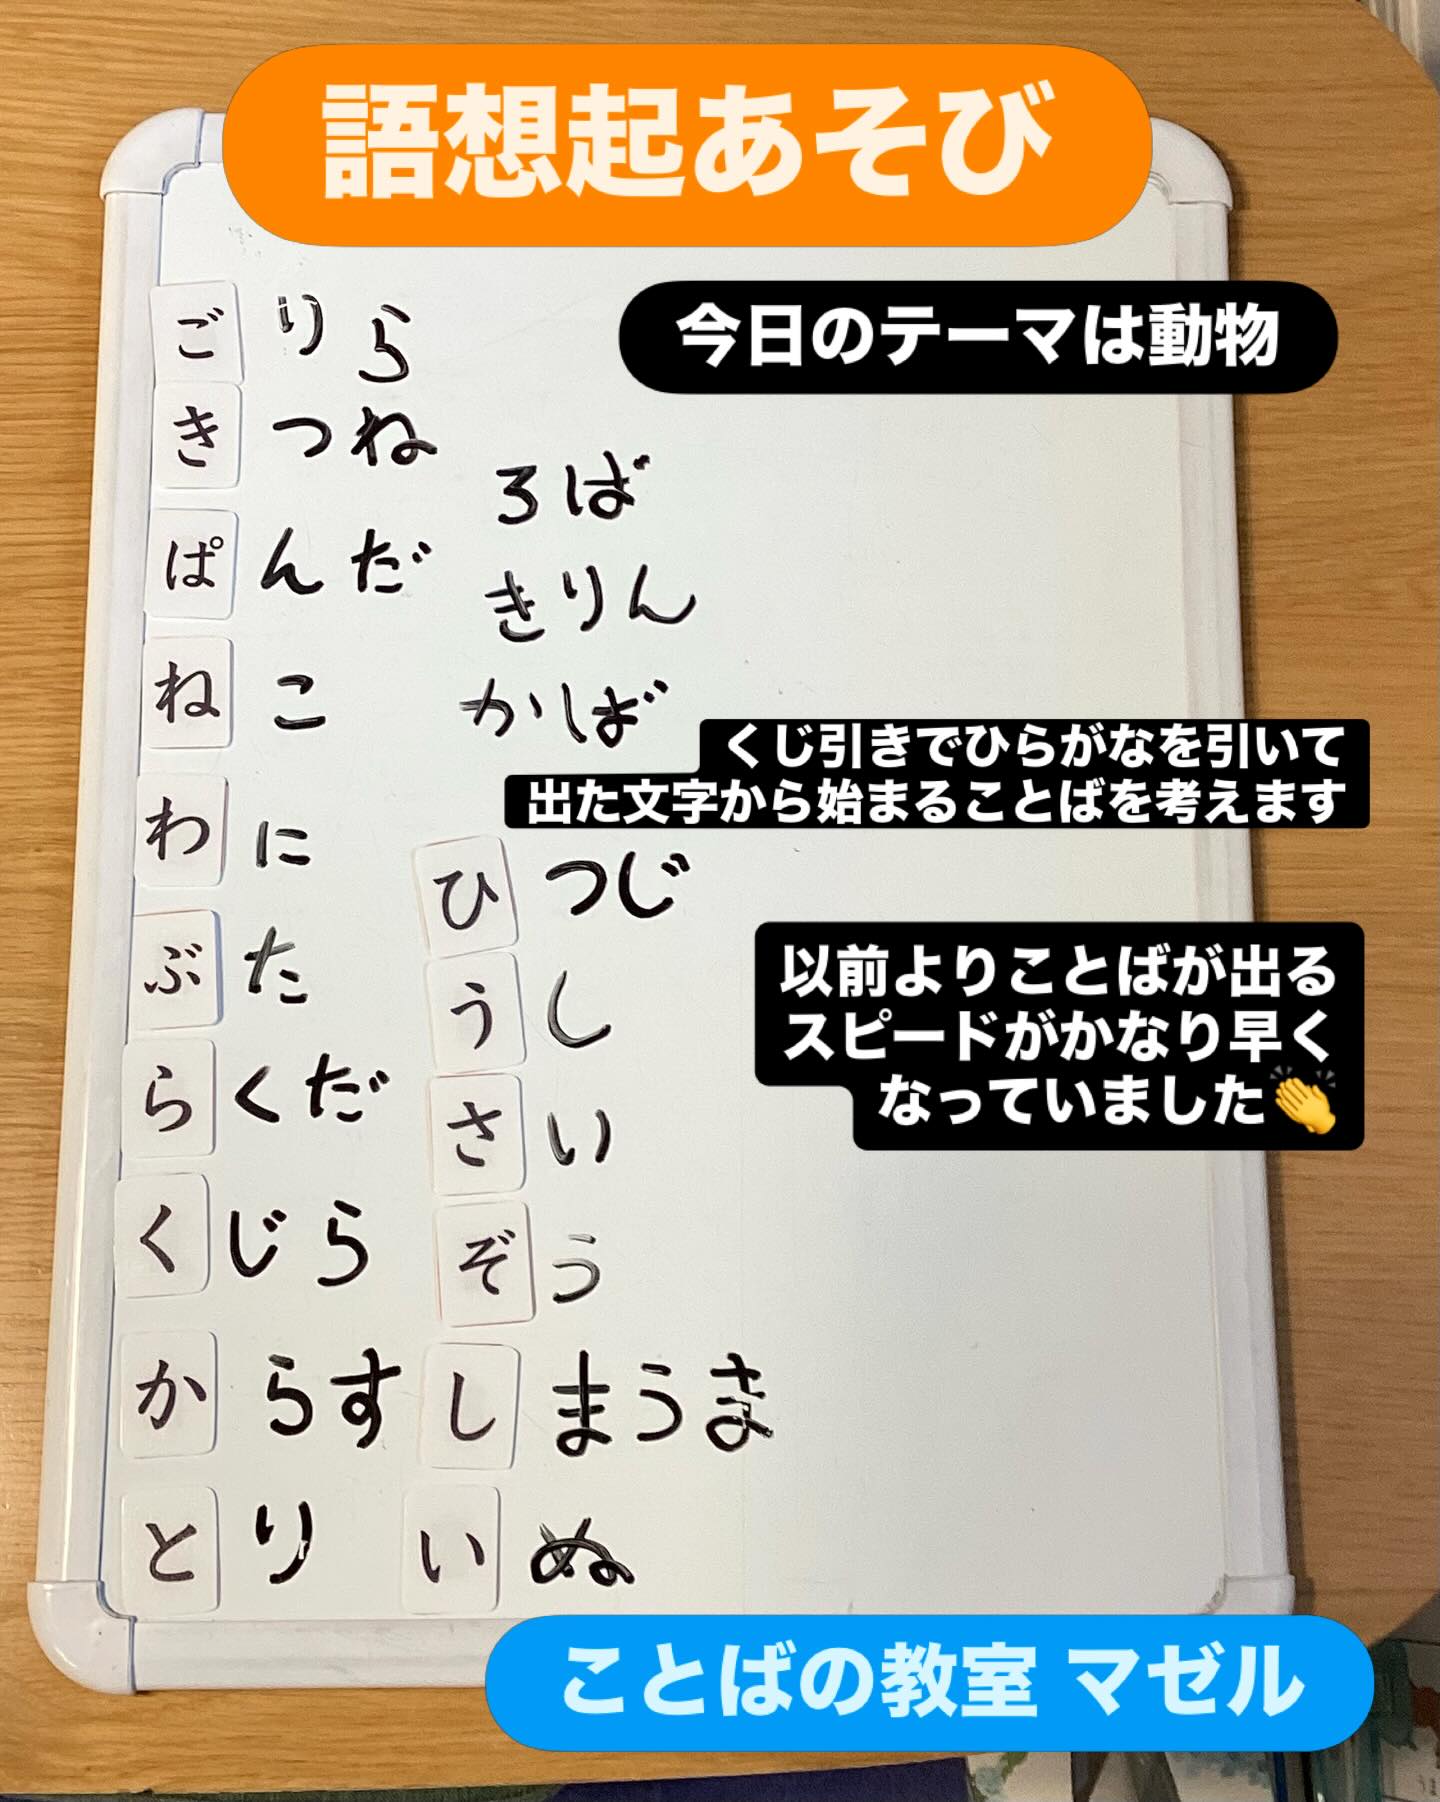 語想起あそび
今日のテーマは動物
ごりら
きつね
ぱんだ
ねこ
わに
ぶた
らくだ
くじら
からす
とり
ろば
きりん
かば
くじ引きでひらがなを引いて
出た文字から始まることばを考えます
ひつじ
うし
さい
ぞう
しまうま
いぬ
以前よりことばが出る
スピードがかなり早く
なっていました👏
ことばの教室 マゼル